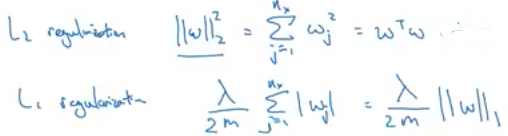 L₂ regularization ||w||₂² = Σ_{j=1}^{n_x} w_j² = wᵀw
L₁ regularization λ/2m Σ_{j=1}^{n_x} |w_j| = λ/2m ||w||₁